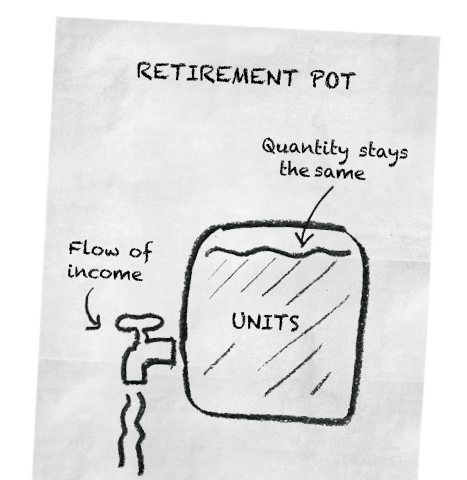 RETIREMENT POT
Quantity stays
the same
Flow of
income
UNITS